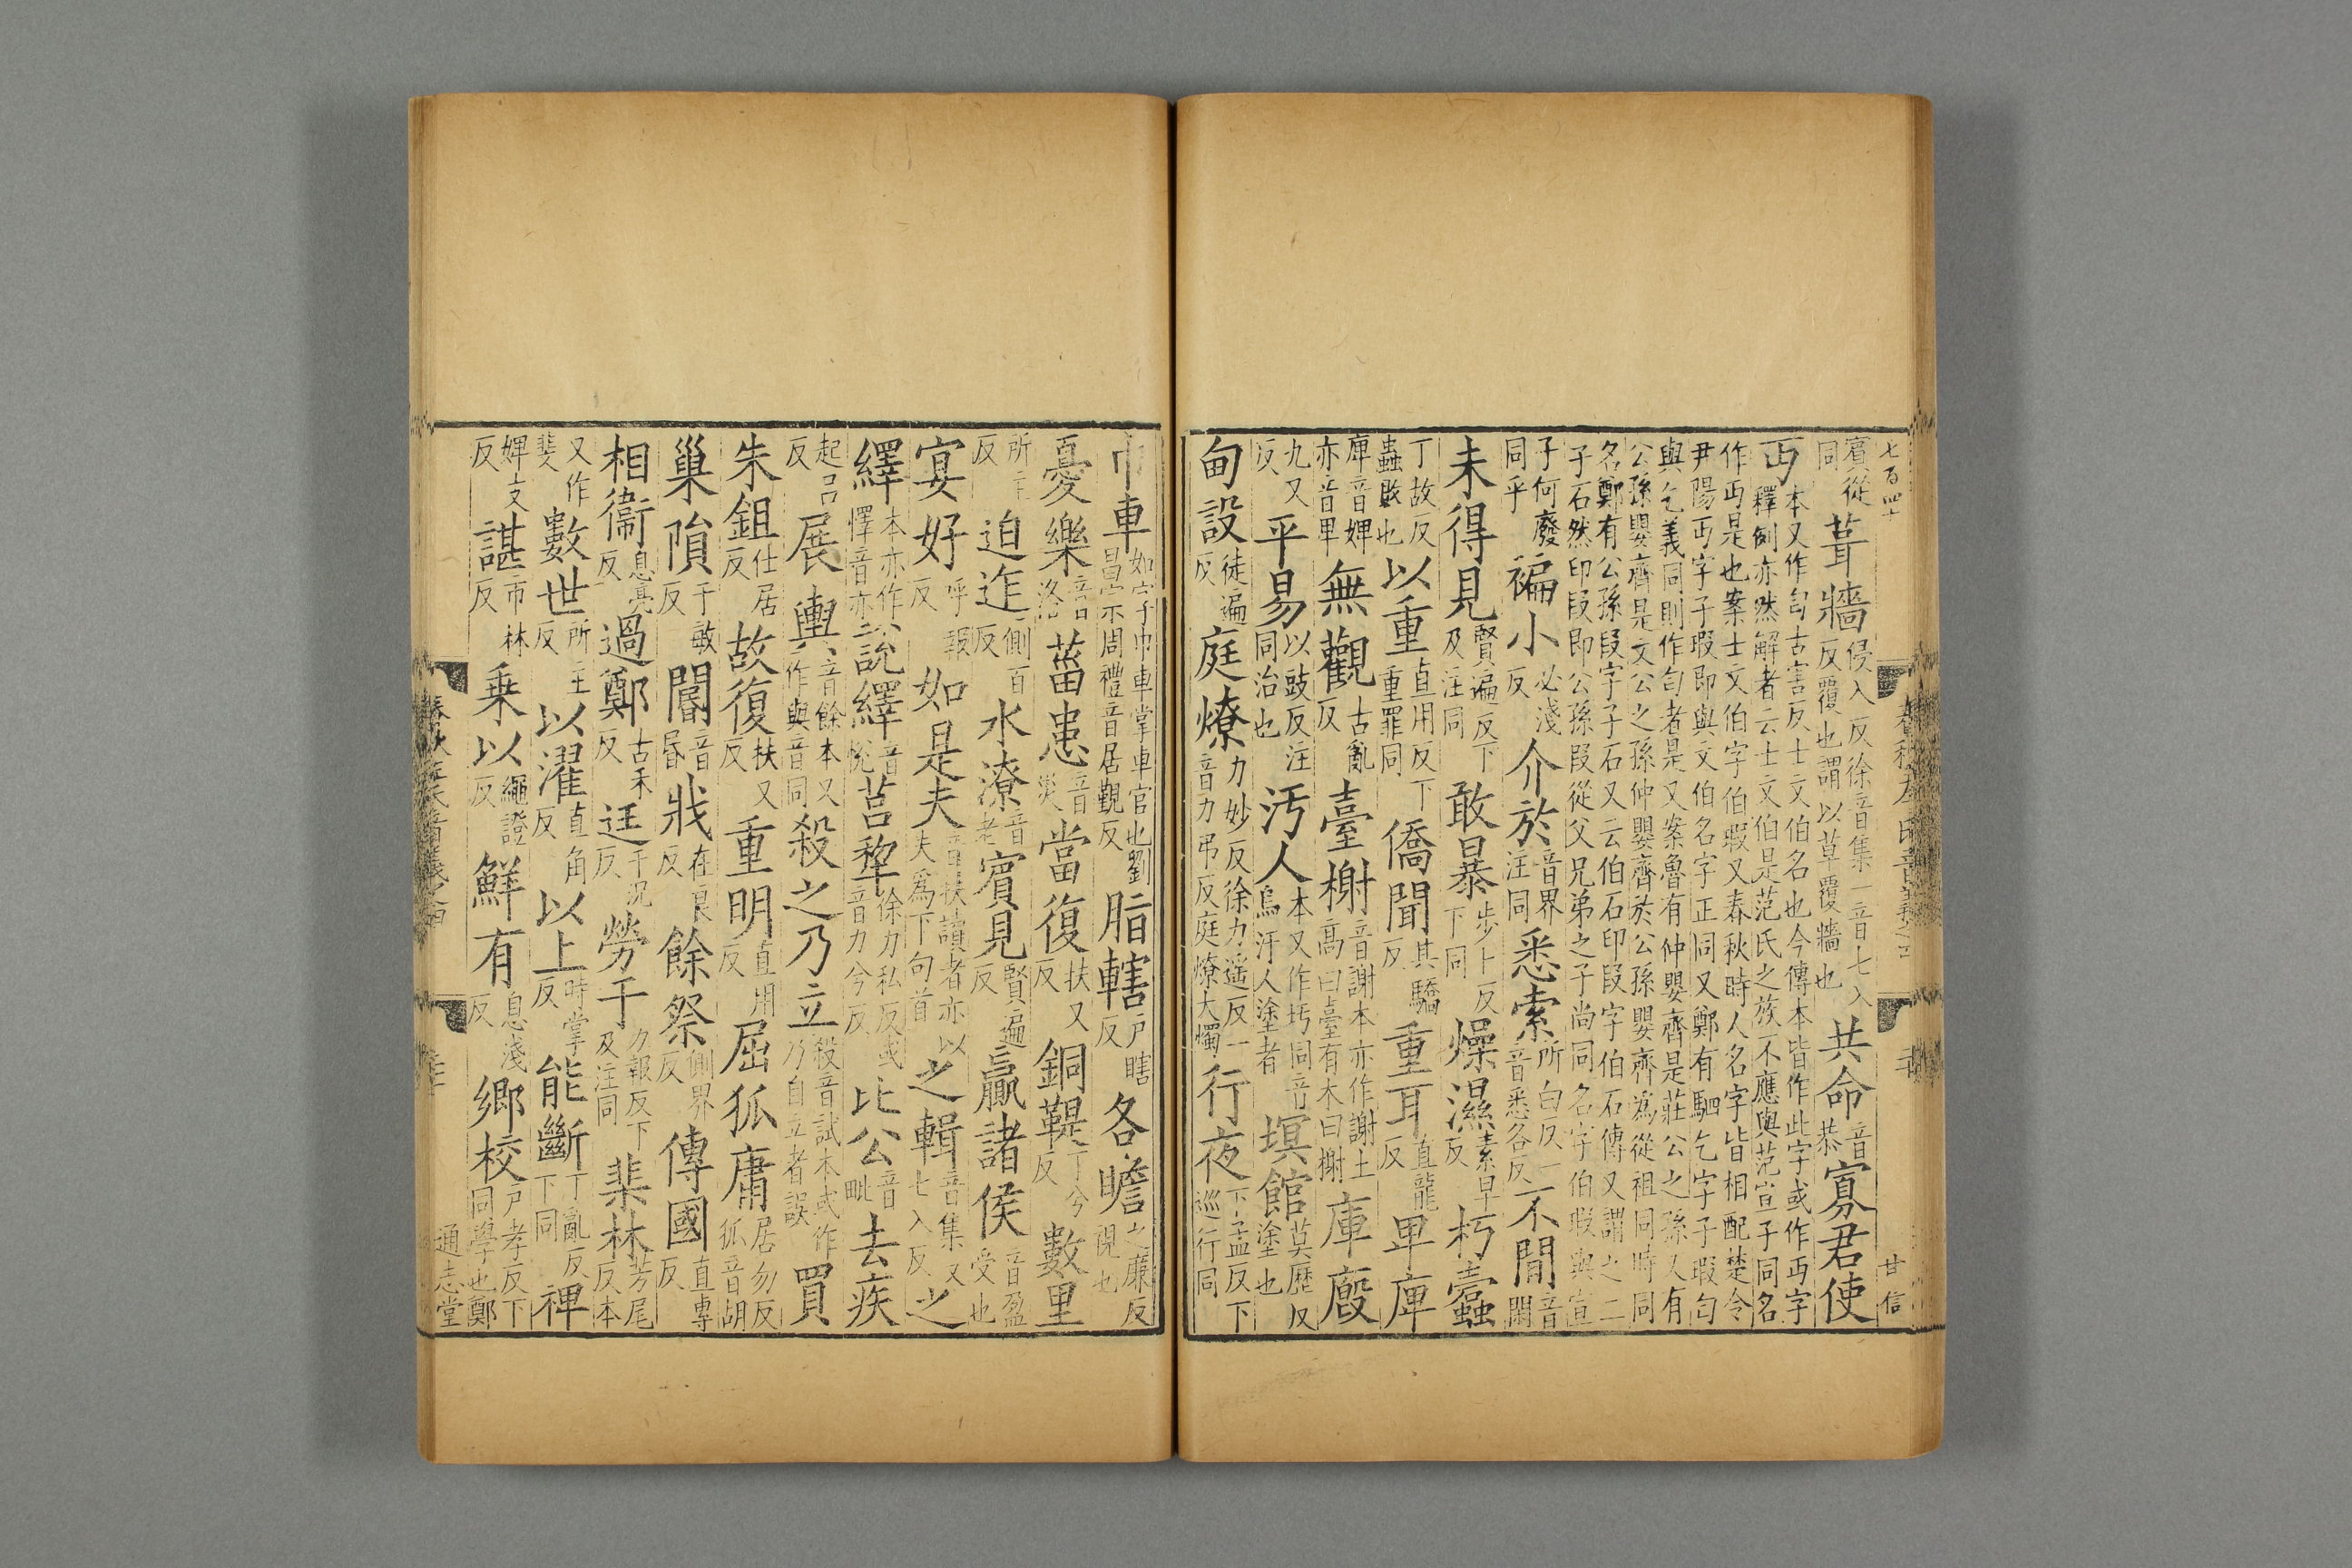 七百四十
甘信
賓從同葺牆侵入反徐音集一音七入反覆也謂以草覆牆也共命音恭寡君使
丏本又作匄古害反士文伯名也今傳本皆作此字或作丏字釋例亦然解者云士文伯是范氏之族不應與范宣子同名
作丏是也案士文伯字伯瑕又春秋時人名字皆相配楚令尹陽丏字子瑕即與文伯名字正同又鄭有駟乞字子瑕匄
與乞義同則作匄者是又案魯有仲嬰齊是莊公之孫又有公孫嬰齊是文公之孫仲嬰齊於公孫嬰齊為從祖同時同
名鄭有公孫段字子石又云伯石印段字伯石傳又謂之二子石然印段即公孫段從父兄弟之子尚同名字伯瑕與宣
子何廢同乎褊小必淺反介於音界注同悉索所白反一音悉各反不閒音閑
未得見賢遍反下及注同敢暴步卜反下同燥濕素早反朽蠹
丁故反蟲敗也以重直用反下重罪同僑聞其驕反重耳直龍反卑庳
庳音婢亦音卑無觀古亂反臺榭音謝本亦作謝土高曰臺有木曰榭庫廄
九又反平易以豉反注同治也汚人本又作圬同音烏汙人塗者塓館莫歷反塗也
甸設徒遍反庭燎力妙反徐力遥反一音力弔反庭燎大燭行夜下孟反下巡行同
巾車如字巾車掌車官也劉昌宗周禮音居觀反脂轄户瞎反各瞻之廉反視也
憂樂音洛菑患音災當復扶又反銅鞮丁兮反數里
所主反迫迮側百反水潦音老賓見賢遍反贏諸侯音盈受也
宴好呼報反如是夫音扶讀者亦以夫為下句首之輯音集又七入反之
繹本亦作懌音亦説繹音悅莒犂徐力私反或音力兮反比公音毗去疾
起呂反展輿音餘本又作與音同殺之乃立殺音試本或作乃自立者誤買
朱鉏仕居反故復扶又反重明直用反屈狐庸居勿反狐音胡
巢隕于敏反閽音昏戕在良反餘祭側界反傳國直專反
相衞息亮反過鄭古禾反迋于況反勞于力報反下及注同棐林芳尾反本
又作斐數世所主反以濯直角反以上時掌反能斷丁亂反下同裨
婢支反諶市林反乗以繩證反鮮有息淺反鄉校户孝反下同學也鄭
通志堂